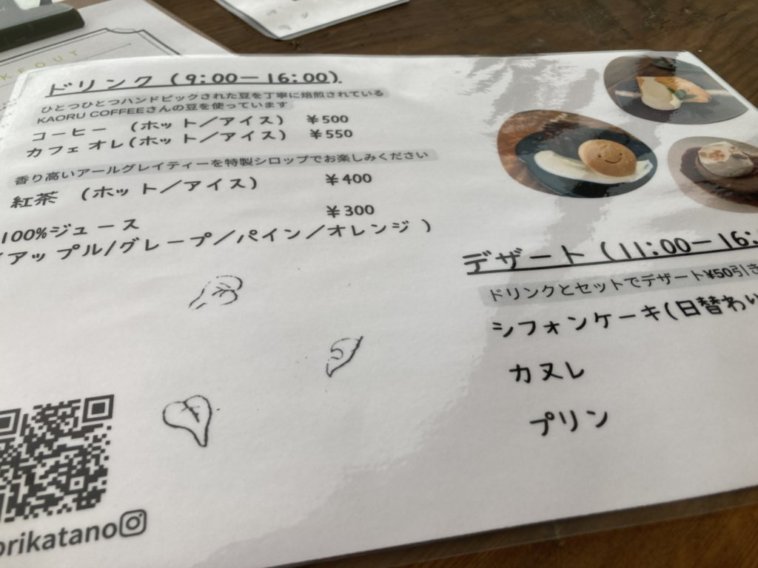 ドリンク (9:00ー16:00)
ひとつひとつハンドピックされた豆を丁寧に焙煎されている
KAORU COFFEEさんの豆を使っています
コーヒー (ホット/アイス) ¥500
カフェオレ(ホット/アイス) ¥550
香り高いアールグレイティーを特製シロップでお楽しみください
紅茶 (ホット/アイス) ¥400
100%ジュース ¥300
(アップル/グレープ/パイン/オレンジ)
デザート (11:00ー16:
ドリンクとセットでデザート¥50引き
シフォンケーキ(日替わり
カヌレ
プリン
orikatano